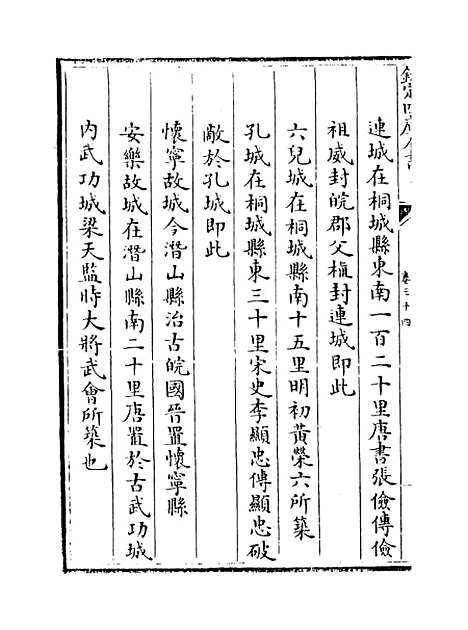 欽定四庫全書
卷三十四
連城在桐城縣東南一百二十里唐書張儉傳儉
祖威封皖郡父植封連城即此
六兒城在桐城縣南十五里明初黃榮六所築
孔城在桐城縣東三十里宋史李顯忠傳顯忠破
敵於孔城即此
懷寧故城今潛山縣治古皖國晉置懷寧縣
安樂故城在潛山縣南二十里唐置於古武功城
內武功城梁天監時大將武會所築也